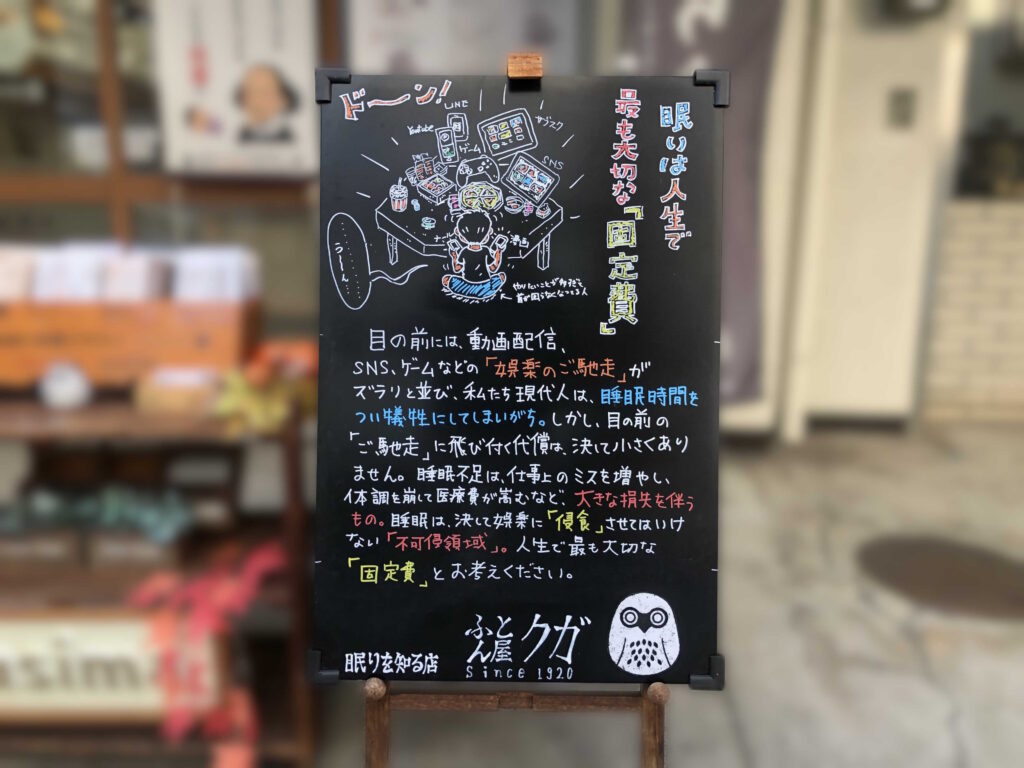 眠りは人生で
最も大切な
「固定費」
ドーン!
LINE
Youtube
ゲーム
サブスク
SNS
漫画
うーーん
やりたいことが多すぎて
首が回らなくなってる人
目の前には、動画配信、
SNS、ゲームなどの「娯楽のご馳走」が
ズラリと並び、私たち現代人は、睡眠時間を
つい犠牲にしてしまいがち。しかし、目の前の
「ご馳走」に飛び付く代償は、決して小さくあり
ません。睡眠不足は、仕事上のミスを増やし、
体調を崩して医療費が嵩むなど、大きな損失を伴う
もの。睡眠は、決して娯楽に「侵食」させてはいけ
ない「不可侵領域」。人生で最も大切な
「固定費」とお考えください。
眠りを知る店
ふとん屋クガ
since 1920
asim